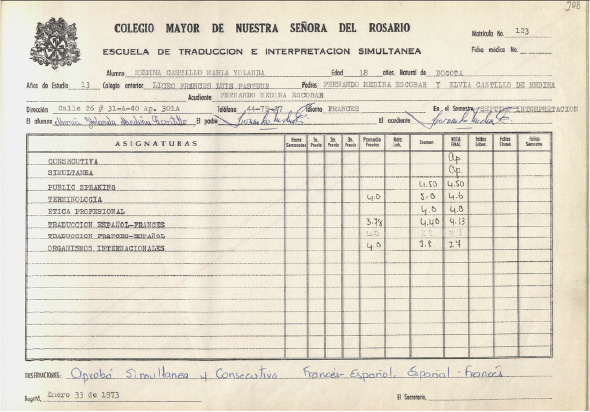 308
COLEGIO MAYOR DE NUESTRA SEÑORA DEL ROSARIO
Matrícula No. 123
ESCUELA DE TRADUCCION E INTERPRETACION SIMULTANEA
Ficha médica No.
Alumno MEDINA CASTILLO MARIA YOLANDA Edad 18 años. Natural de BOGOTA
Años de Estudio 13 Colegio anterior LICEO FRANCES LUIS PASTEUR Padres FERNANDO MEDINA ESCOBAR Y ELVIA CASTILLO DE MEDINA
Acudiente FERNANDO MEDINA ESCOBAR
Dirección Calle 26 # 31-A-40 Ap. 301A Teléfono 44-79-87 Idioma FRANCES En el Semestre SEPTIMO INTERPRETACION
El alumno María Yolanda Medina Castillo El padre El acudiente
ASIGNATURAS Horas Semanales 1a. Previa 2a. Previa 3a. Previa Promedio Previas Nota Lab. Examen NOTA FINAL Fallas Labor. Fallas Clases Fallas Semestre
CONSECUTIVA Ap.
SIMULTANEA Ap.
PUBLIC SPEAKING 4.50 4.50
TERMINOLOGIA 4.0 5.0 4.6
ETICA PROFESIONAL 4.0 4.0
TRADUCCION ESPAÑOL-FRANCES 3.78 4.40 4.13
TRADUCCION FRANCES-ESPAÑOL 4.0
ORGANISMOS INTERNACIONALES 4.0 3.8 3.7
OBSERVACIONES: Aprobó Simultanea y Consecutiva Francés-Español, Español-Francés
Bogotá, Enero 33 de 1973 El Secretario,